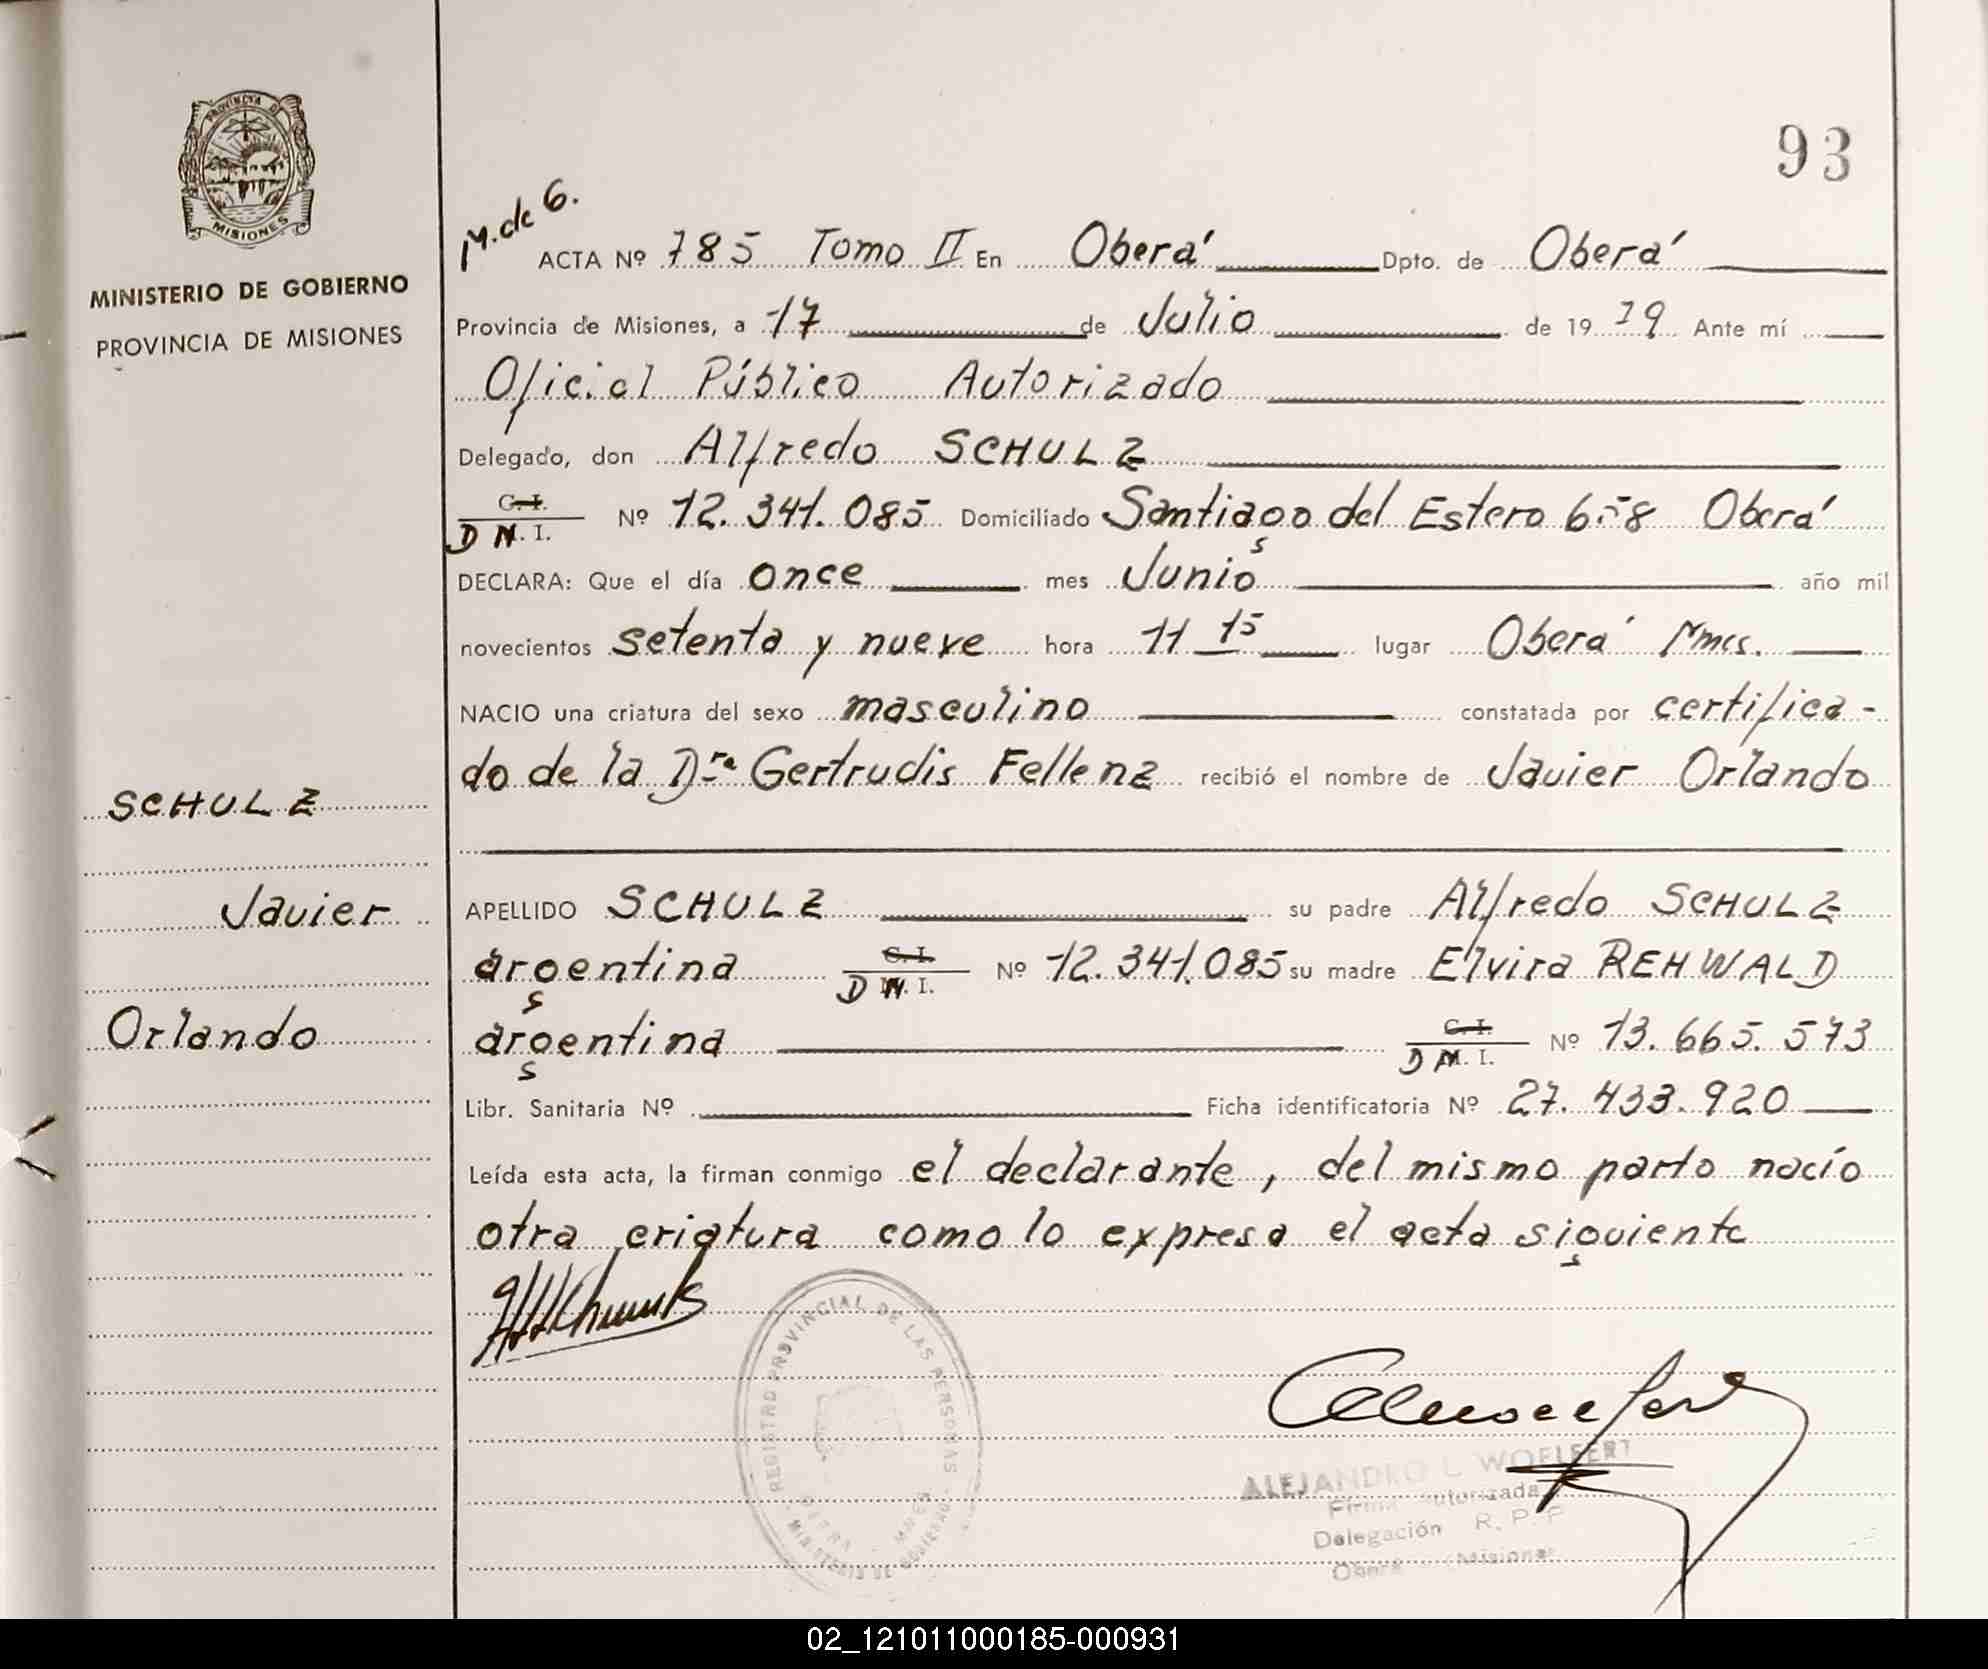 93
PROVINCIA DE
MISIONES
MINISTERIO DE GOBIERNO
PROVINCIA DE MISIONES
M. de G.
ACTA Nº 785 Tomo II En Oberá Dpto. de Oberá
Provincia de Misiones, a 17 de Julio de 19 79 Ante mí
Oficial Público Autorizado
Delegado, don Alfredo SCHULZ
C. I.
D N. I. Nº 12.341.085 Domiciliado Santiago del Estero 658 Oberá
DECLARA: Que el día once mes Junio año mil
novecientos setenta y nueve hora 11 15 lugar Oberá Mnes.
NACIO una criatura del sexo masculino constatada por certifica-
do de la Dra Gertrudis Fellenz recibió el nombre de Javier Orlando
SCHULZ
Javier
Orlando
APELLIDO SCHULZ su padre Alfredo SCHULZ
argentina C. I. D N. I. Nº 12.341.085 su madre Elvira REHWALD
argentina C. I. D N. I. Nº 13.665.573
Libr. Sanitaria Nº Ficha identificatoria Nº 27.433.920
Leída esta acta, la firman conmigo el declarante, del mismo parto nacío
otra criatura como lo expresa el acta siguiente
REGISTRO PROVINCIAL DE LAS PERSONAS
MINISTERIO DE GOBIERNO
ALEJANDRO L WOELFERT
Firma autorizada
Delegación R. P. P
Oberá Misiones
02_121011000185-000931